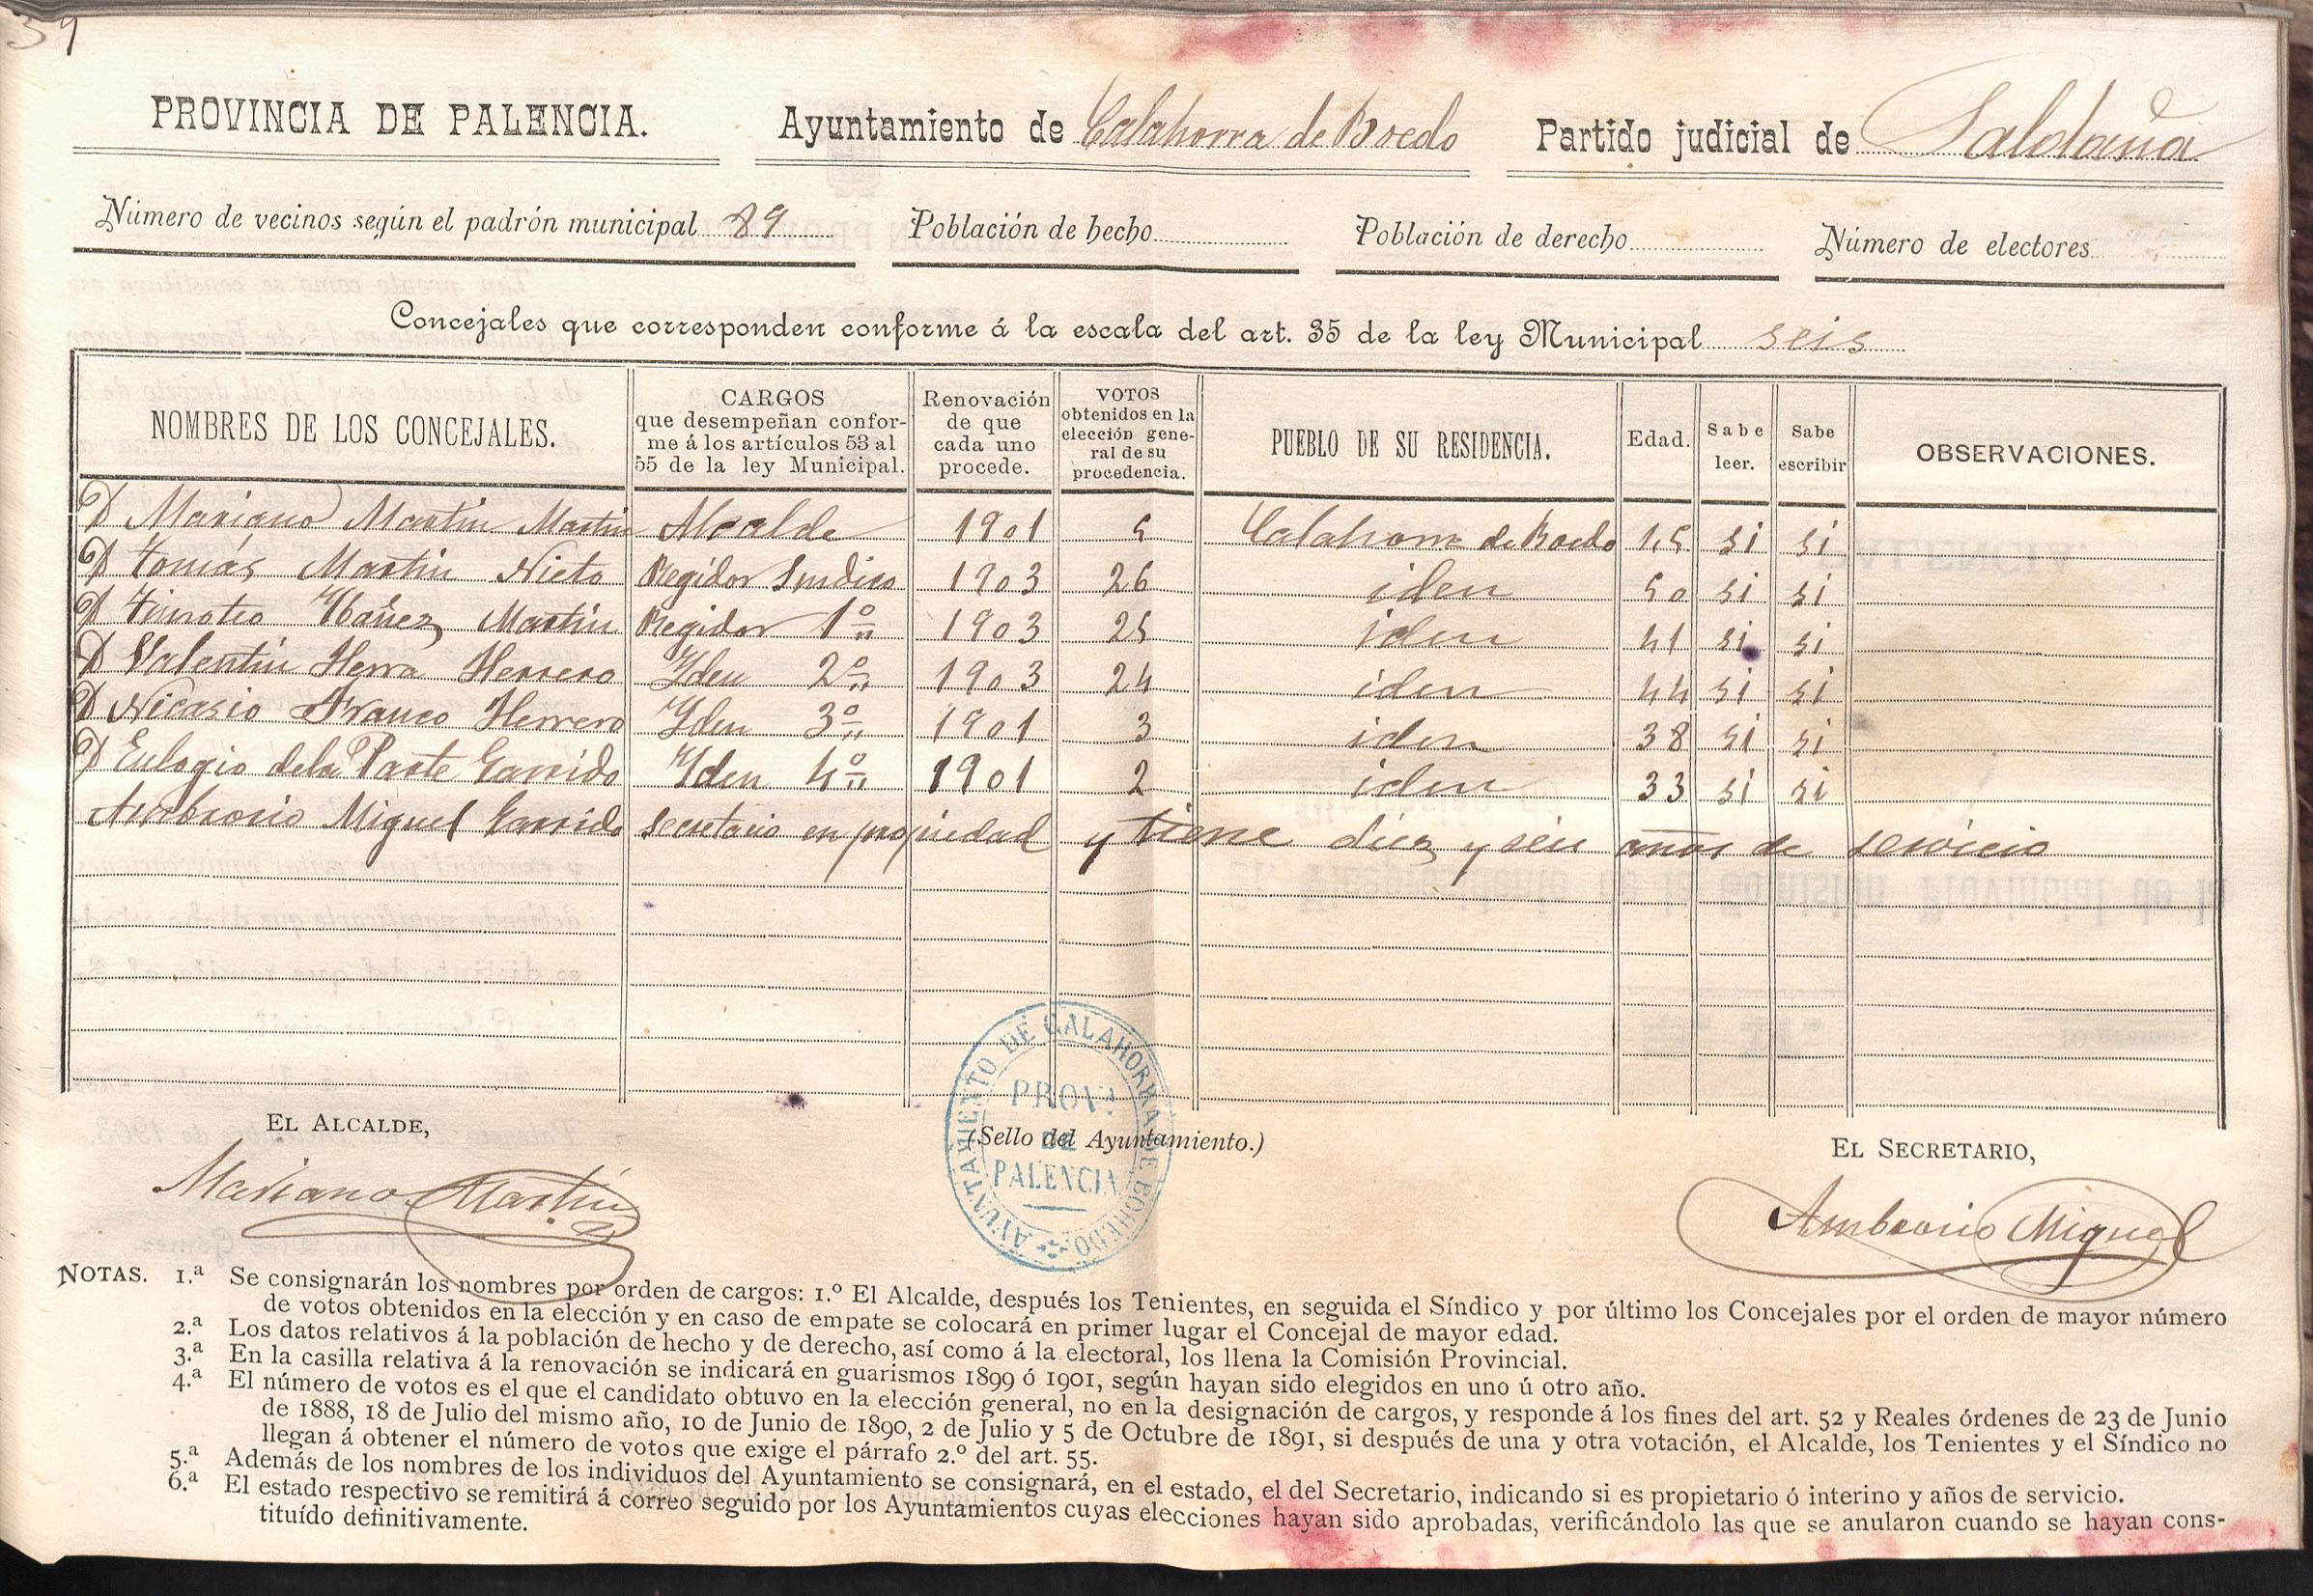 39
PROVINCIA DE PALENCIA. Ayuntamiento de Calahorra de Boedo Partido judicial de Saldaña
Número de vecinos según el padrón municipal 89 Población de hecho Población de derecho Número de electores
Concejales que corresponden conforme á la escala del art. 35 de la ley Municipal seis
NOMBRES DE LOS CONCEJALES. CARGOS que desempeñan conforme á los artículos 53 al 55 de la ley Municipal. Renovación de que cada uno procede. VOTOS obtenidos en la elección general de su procedencia. PUEBLO DE SU RESIDENCIA. Edad. Sabe leer. Sabe escribir OBSERVACIONES.
D Mariano Martin Martin Alcalde 1901 5 Calahorra de Boedo 45 si si
D Tomás Martin Nieto Regidor Sindico 1903 26 iden 50 si si
D Timoteo Ybañez Martin Regidor 1º 1903 25 iden 41 si si
D Valentin Herra Herrero Yden 2º 1903 24 iden 44 si si
D Nicasio Franco Herrero Yden 3º 1901 3 iden 38 si si
D Eulogio de la Parte Garrido Yden 4º 1901 2 iden 33 si si
Ambrosio Miguel Garrido secretario en propiedad y tiene diez y seis años de servicio
EL ALCALDE,
(Sello del Ayuntamiento.)
EL SECRETARIO,
AYUNTAMIENTO DE CALAHORRA DE BOHEDO
PROV.ª
DE
PALENCIA
Mariano Martin
Ambrosio Miguel
NOTAS. 1.ª Se consignarán los nombres por orden de cargos: 1.º El Alcalde, después los Tenientes, en seguida el Síndico y por último los Concejales por el orden de mayor número
de votos obtenidos en la elección y en caso de empate se colocará en primer lugar el Concejal de mayor edad.
2.ª Los datos relativos á la población de hecho y de derecho, así como á la electoral, los llena la Comisión Provincial.
3.ª En la casilla relativa á la renovación se indicará en guarismos 1899 ó 1901, según hayan sido elegidos en uno ú otro año.
4.ª El número de votos es el que el candidato obtuvo en la elección general, no en la designación de cargos, y responde á los fines del art. 52 y Reales órdenes de 23 de Junio
de 1888, 18 de Julio del mismo año, 10 de Junio de 1890, 2 de Julio y 5 de Octubre de 1891, si después de una y otra votación, el Alcalde, los Tenientes y el Síndico no
llegan á obtener el número de votos que exige el párrafo 2.º del art. 55.
5.ª Además de los nombres de los individuos del Ayuntamiento se consignará, en el estado, el del Secretario, indicando si es propietario ó interino y años de servicio.
6.ª El estado respectivo se remitirá á correo seguido por los Ayuntamientos cuyas elecciones hayan sido aprobadas, verificándolo las que se anularon cuando se hayan cons-
tituído definitivamente.